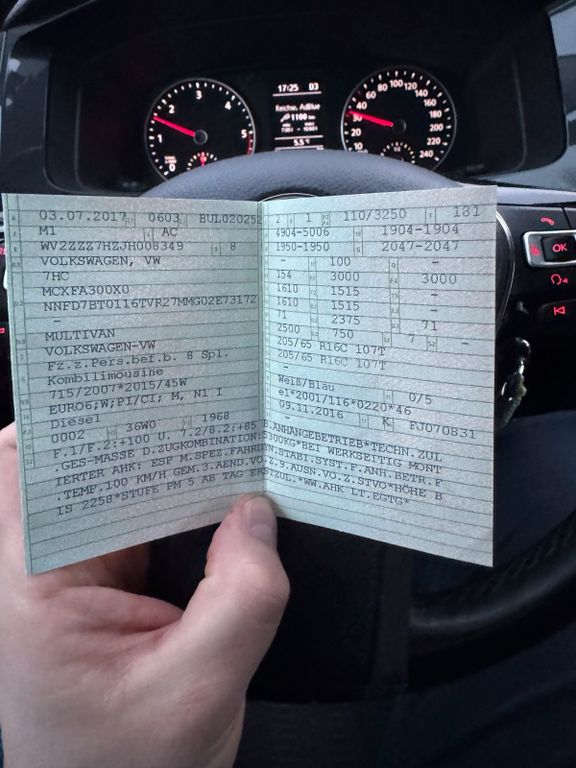 17:25 D3
Reichw. AdBlue
1100 km
5.5
1 2 3 4 5
20 30 40 60 80 100 120 140 160 180 200 220 240
OK
03.07.2017 0603 BUL02025
M1 AC
WV2ZZZ7HZJH008349 8
VOLKSWAGEN, VW
7HC
MCXFA300X0
NNFD7BT0116TVR27MMG02E73172
-
MULTIVAN
VOLKSWAGEN-VW
Fz.z.Pers.bef.b. 8 Spl.
Kombilimousine
715/2007*2015/45W
EURO6;W;PI/CI; M, N1 I
Diesel
0002 36W0 1968
L 1 110/3250 T 181
4904-5006 1904-1904
1950-1950 2047-2047
- 100 -
154 3000 3000
1610 1515 -
1610 1515 -
71 2375 71
2500 750 7 -
205/65 R16C 107T
205/65 R16C 107T
-
-
Weiß/Blau 0/5
e1*2001/116*0220*46
09.11.2016 K FJ070831
F.1/F.2:+100 U. 7.2/8.2:+85 B.ANHANGEBETRIEB*TECHN.ZUL
.GES-MASSE D.ZUGKOMBINATION:5300KG*BEI WERKSEITIG MONT
IERTER AHK: ESP M.SPEZ.FAHRDYN.STABI.SYST.F.ANH.BETR.F
.TEMP.100 KM/H GEM.3.AEND.VO.Z.9.AUSN.VO.Z.STVO*HÖHE B
IS 2258*STUFE PM 5 AB TAG ERSTZUL.*WW.AHK LT.EGTG*